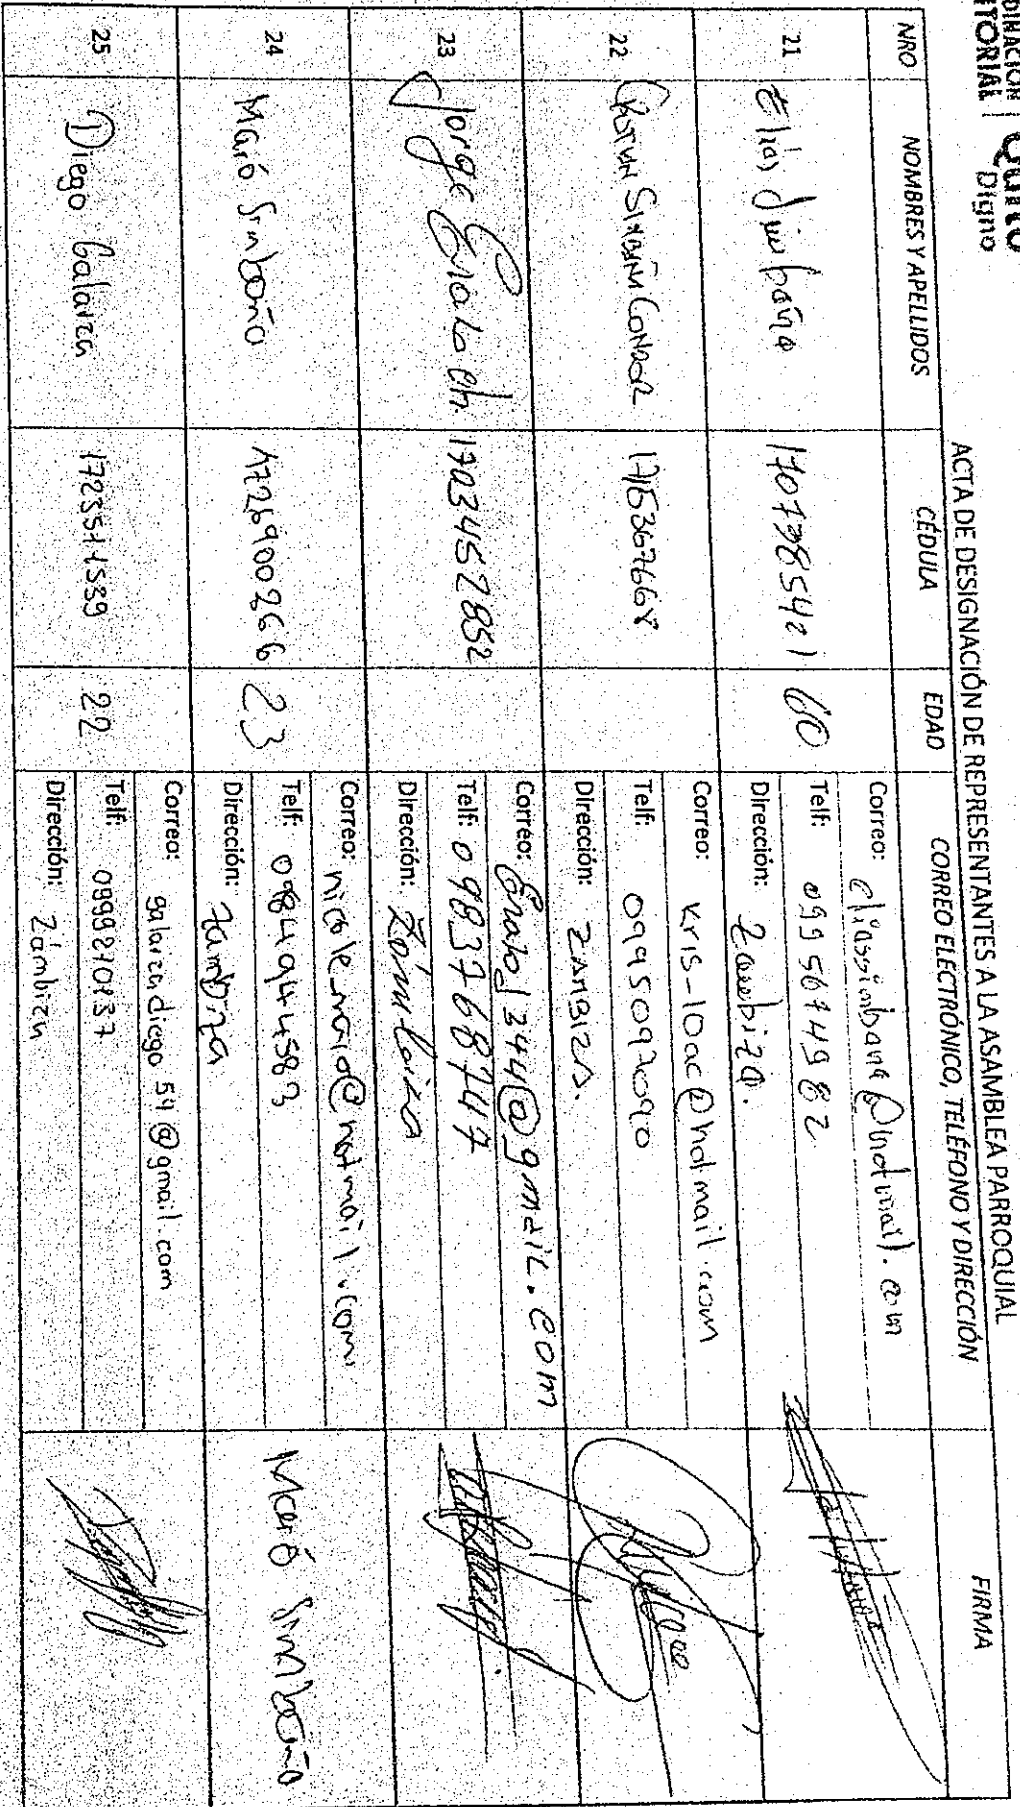 DINACIÓN | Quito
ITORIAL | Digno
ACTA DE DESIGNACIÓN DE REPRESENTANTES A LA ASAMBLEA PARROQUIAL
NRO NOMBRES Y APELLIDOS CÉDULA EDAD CORREO ELECTRÓNICO, TELÉFONO Y DIRECCIÓN FIRMA
21 Elías Simbaña 60
Correo:
Telf: 0995674982
Dirección: Zambiza.
22 SIMBAÑA CONDOR
Correo: kris-10ac@hotmail.com
Telf: 0995097090
Dirección: ZAMBIZA.
23 Jorge 1703457852
Correo: @gmail.com
Telf: 0983768747
Dirección: Zámbiza
24 Maró Simbaña 1726900266 23
Correo: nicole_maro@hotmail.com
Telf: 0984944583
Dirección: Zambiza
Maró Simbaña
25 Diego Galarza 1723511539 22
Correo: galarzadiego54@gmail.com
Telf: 0999270837
Dirección: Zámbiza